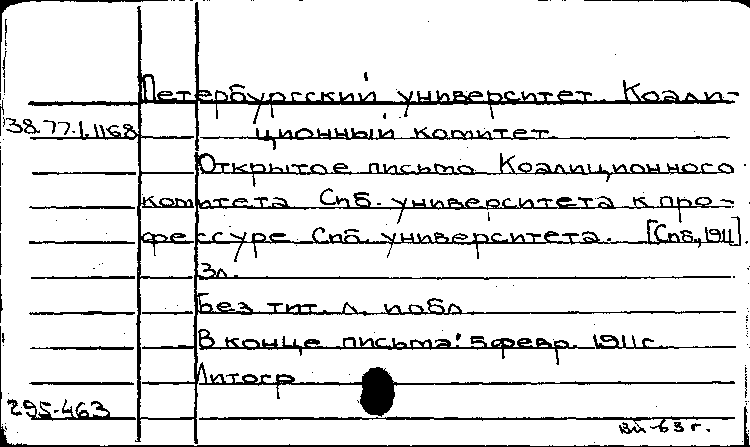 Петербургский университет. Коали-
38.77.1.1168 ционный комитет.
Открытое письмо Коалиционного
комитета Спб. университета к про-
фессуре Спб. университета. [Спб., 1911].
3л.
Без тит. л. и обл.
В конце письма: 5 февр. 1911 г.
Литогр.
295-463